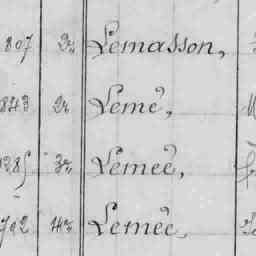 807 2e Lemasson,
843 2e Lemé,
285 3e Lemeé,
792 4e Lemée,